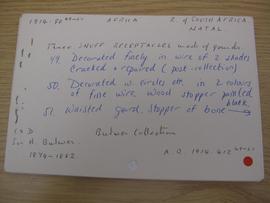 1914.80 49-51 AFRICA R. of SOUTH AFRICA
NATAL
Three SNUFF RECEPTACLES made of gourds.
49. Decorated finely in wire of 2 shades
Cracked + repaired (post-collection)
50. Decorated w. circles etc. in 2 colours
of fine wire wood stopper painted
black
51. Waisted gourd, stopper of bone
Bulwer Collection
Sir H. Bulwer
A.D. 1914. 412 49-51